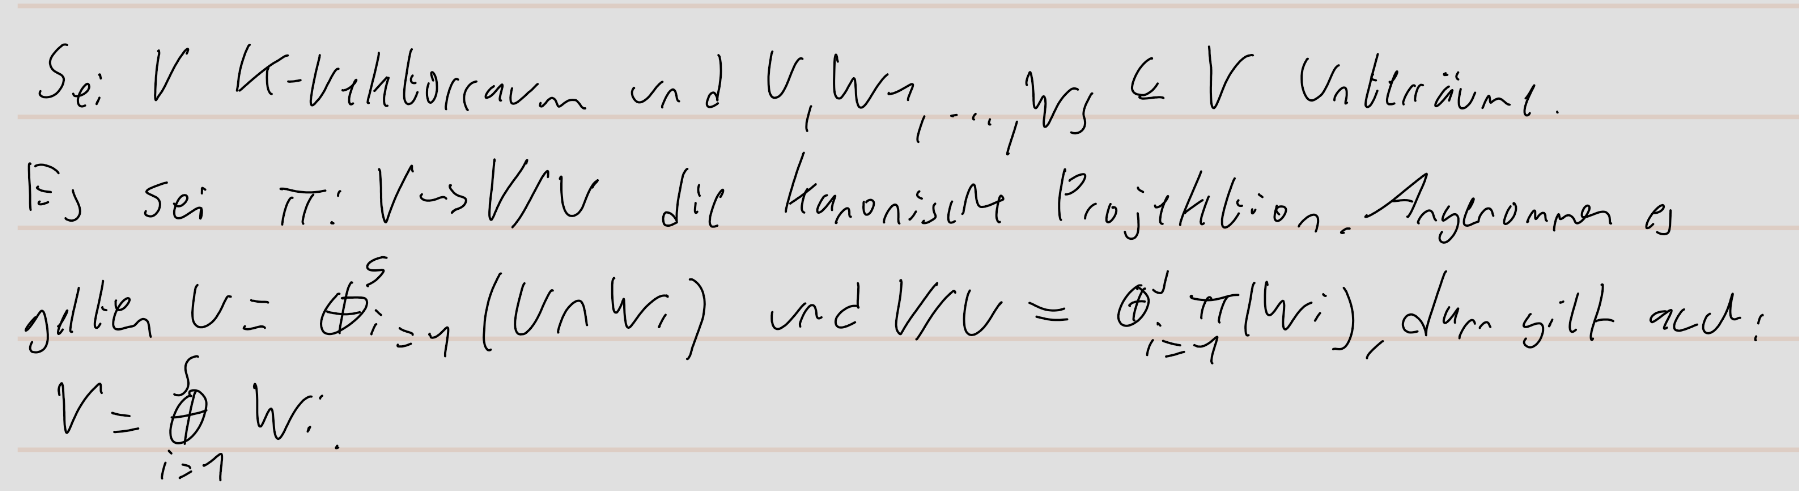 Sei V K-Vektorraum und U, W1, ..., Ws ⊆ V Unterräume.
Es sei π: V -> V/U die kanonische Projektion. Angenommen es
gelten U = ⊕ˢᵢ₌₁ (U ∩ Wi) und V/U = ⊕ˢᵢ₌₁ π(Wi), dann gilt auch:
V = ⊕ˢᵢ₌₁ Wi.